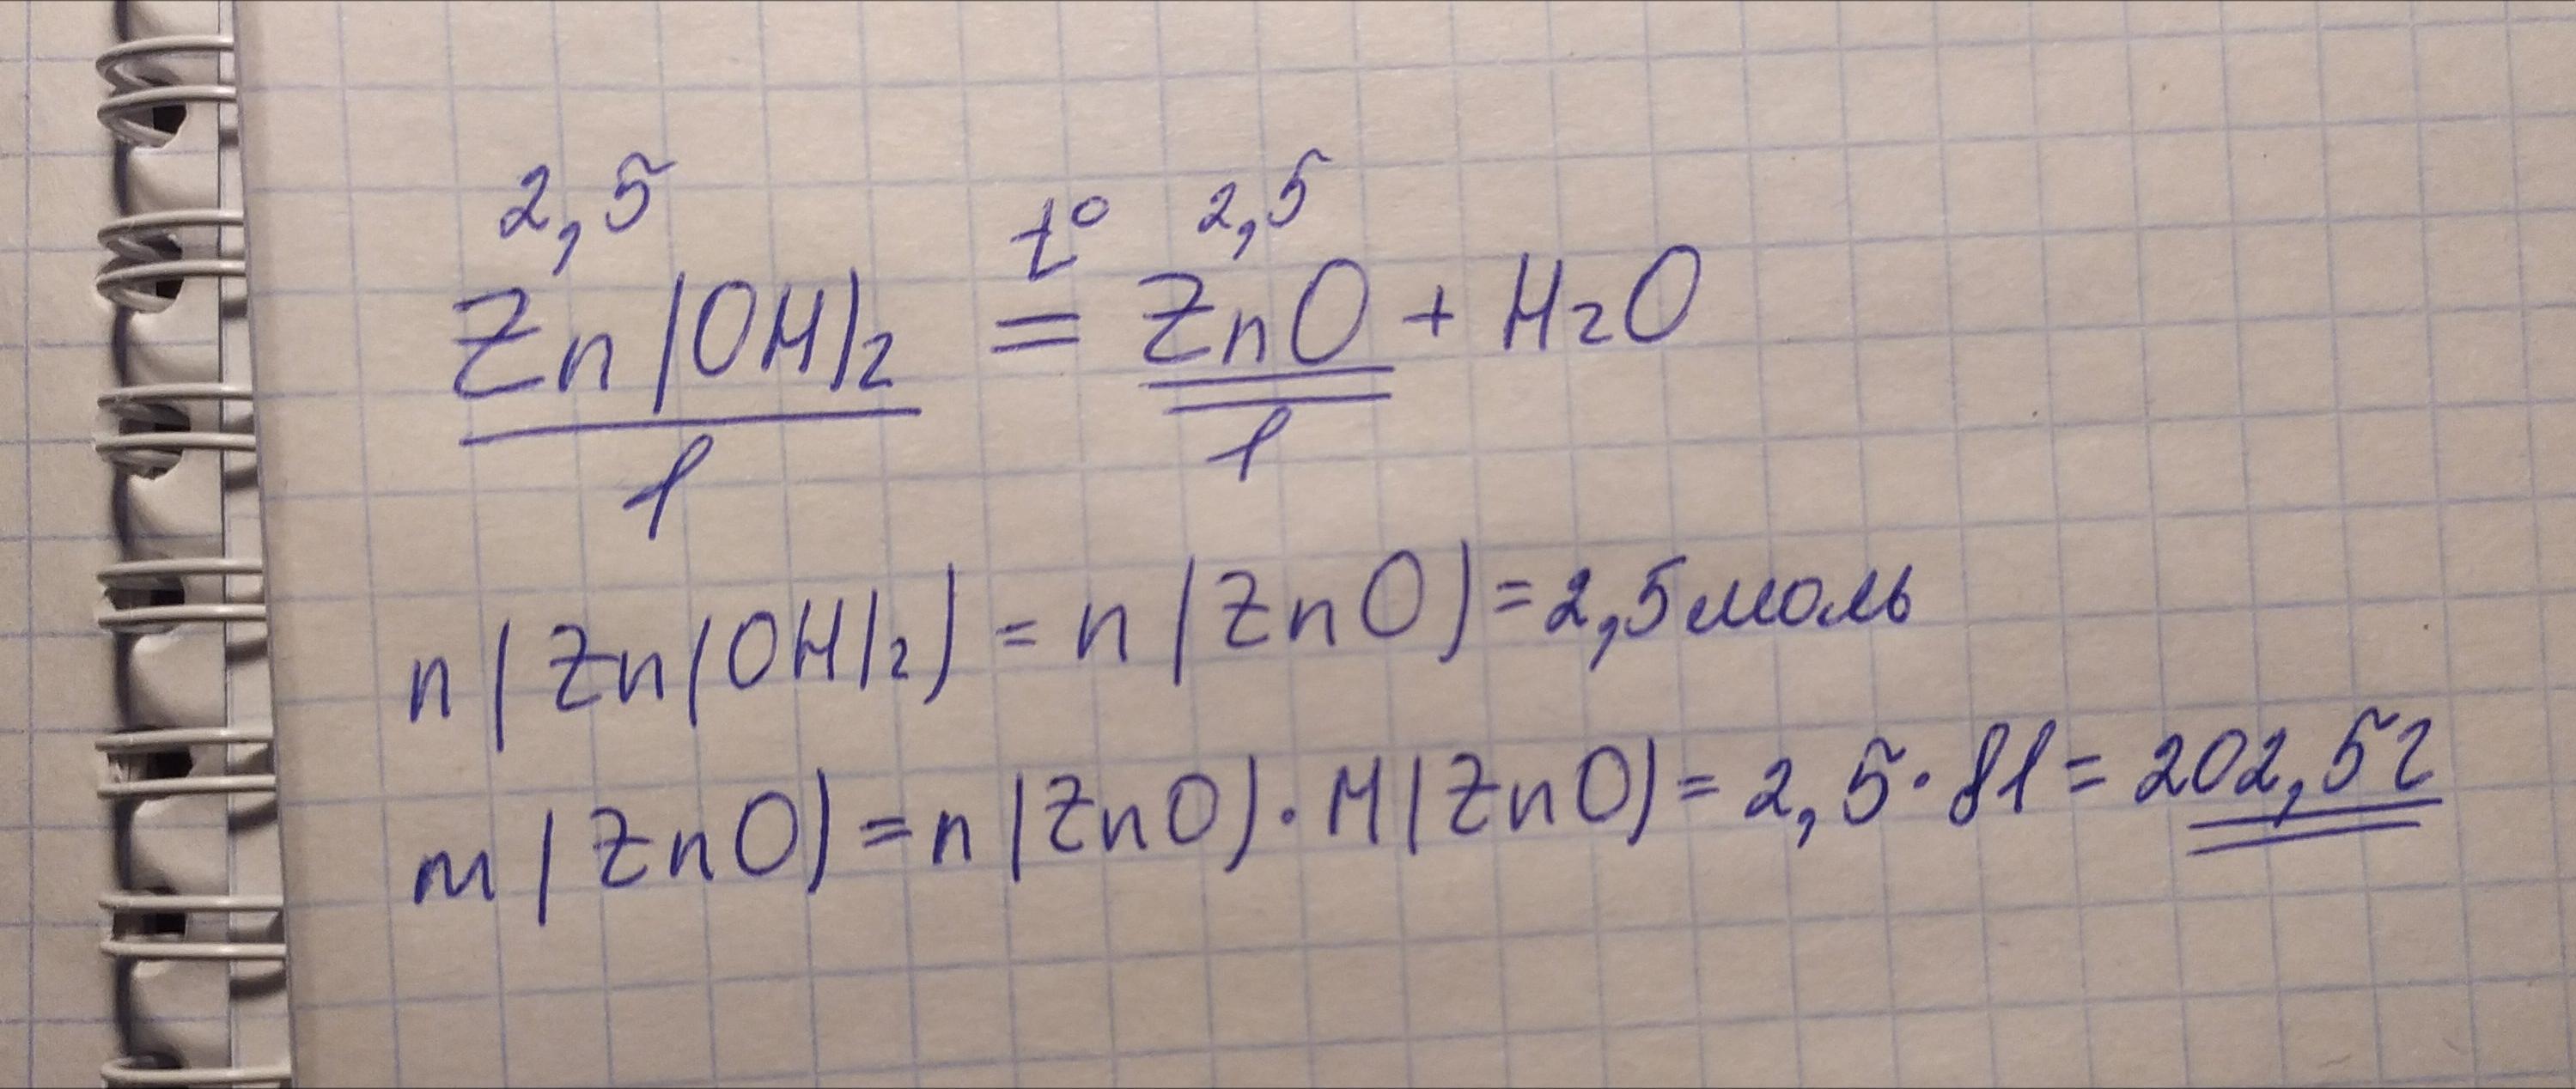 2,5 t° 2,5
Zn(OH)₂ = ZnO + H₂O
1 1
n(Zn(OH)₂) = n(ZnO) = 2,5моль
m(ZnO) = n(ZnO)·M(ZnO) = 2,5·81 = 202,5г